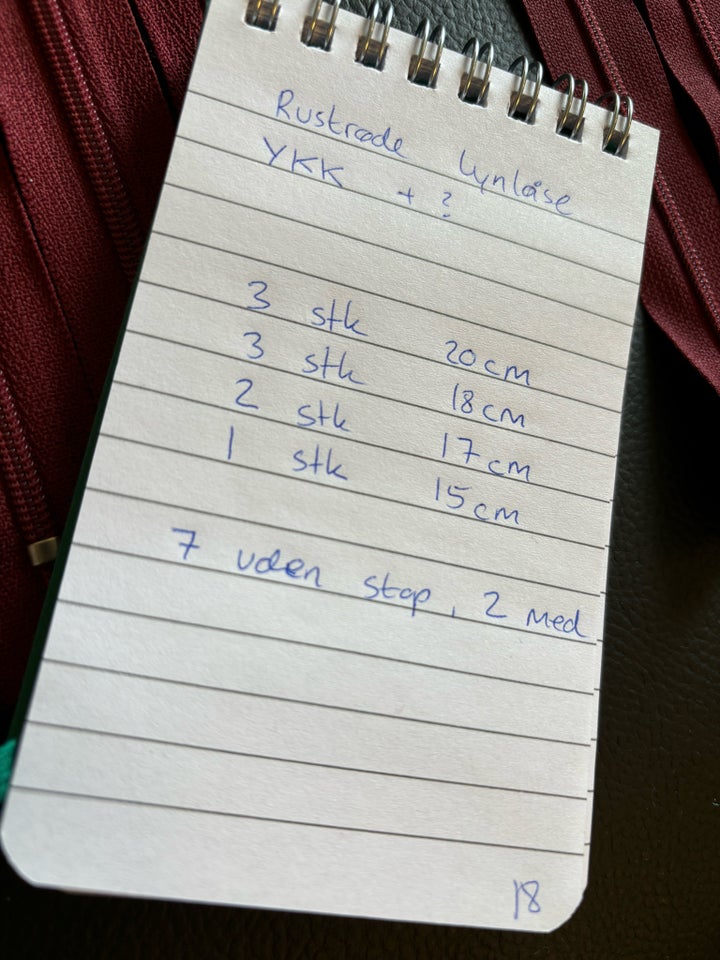 Rustrøde lynlåse
YKK + ?
3 stk 20cm
3 stk 18cm
2 stk 17cm
1 stk 15cm
7 uden stop, 2 med
18